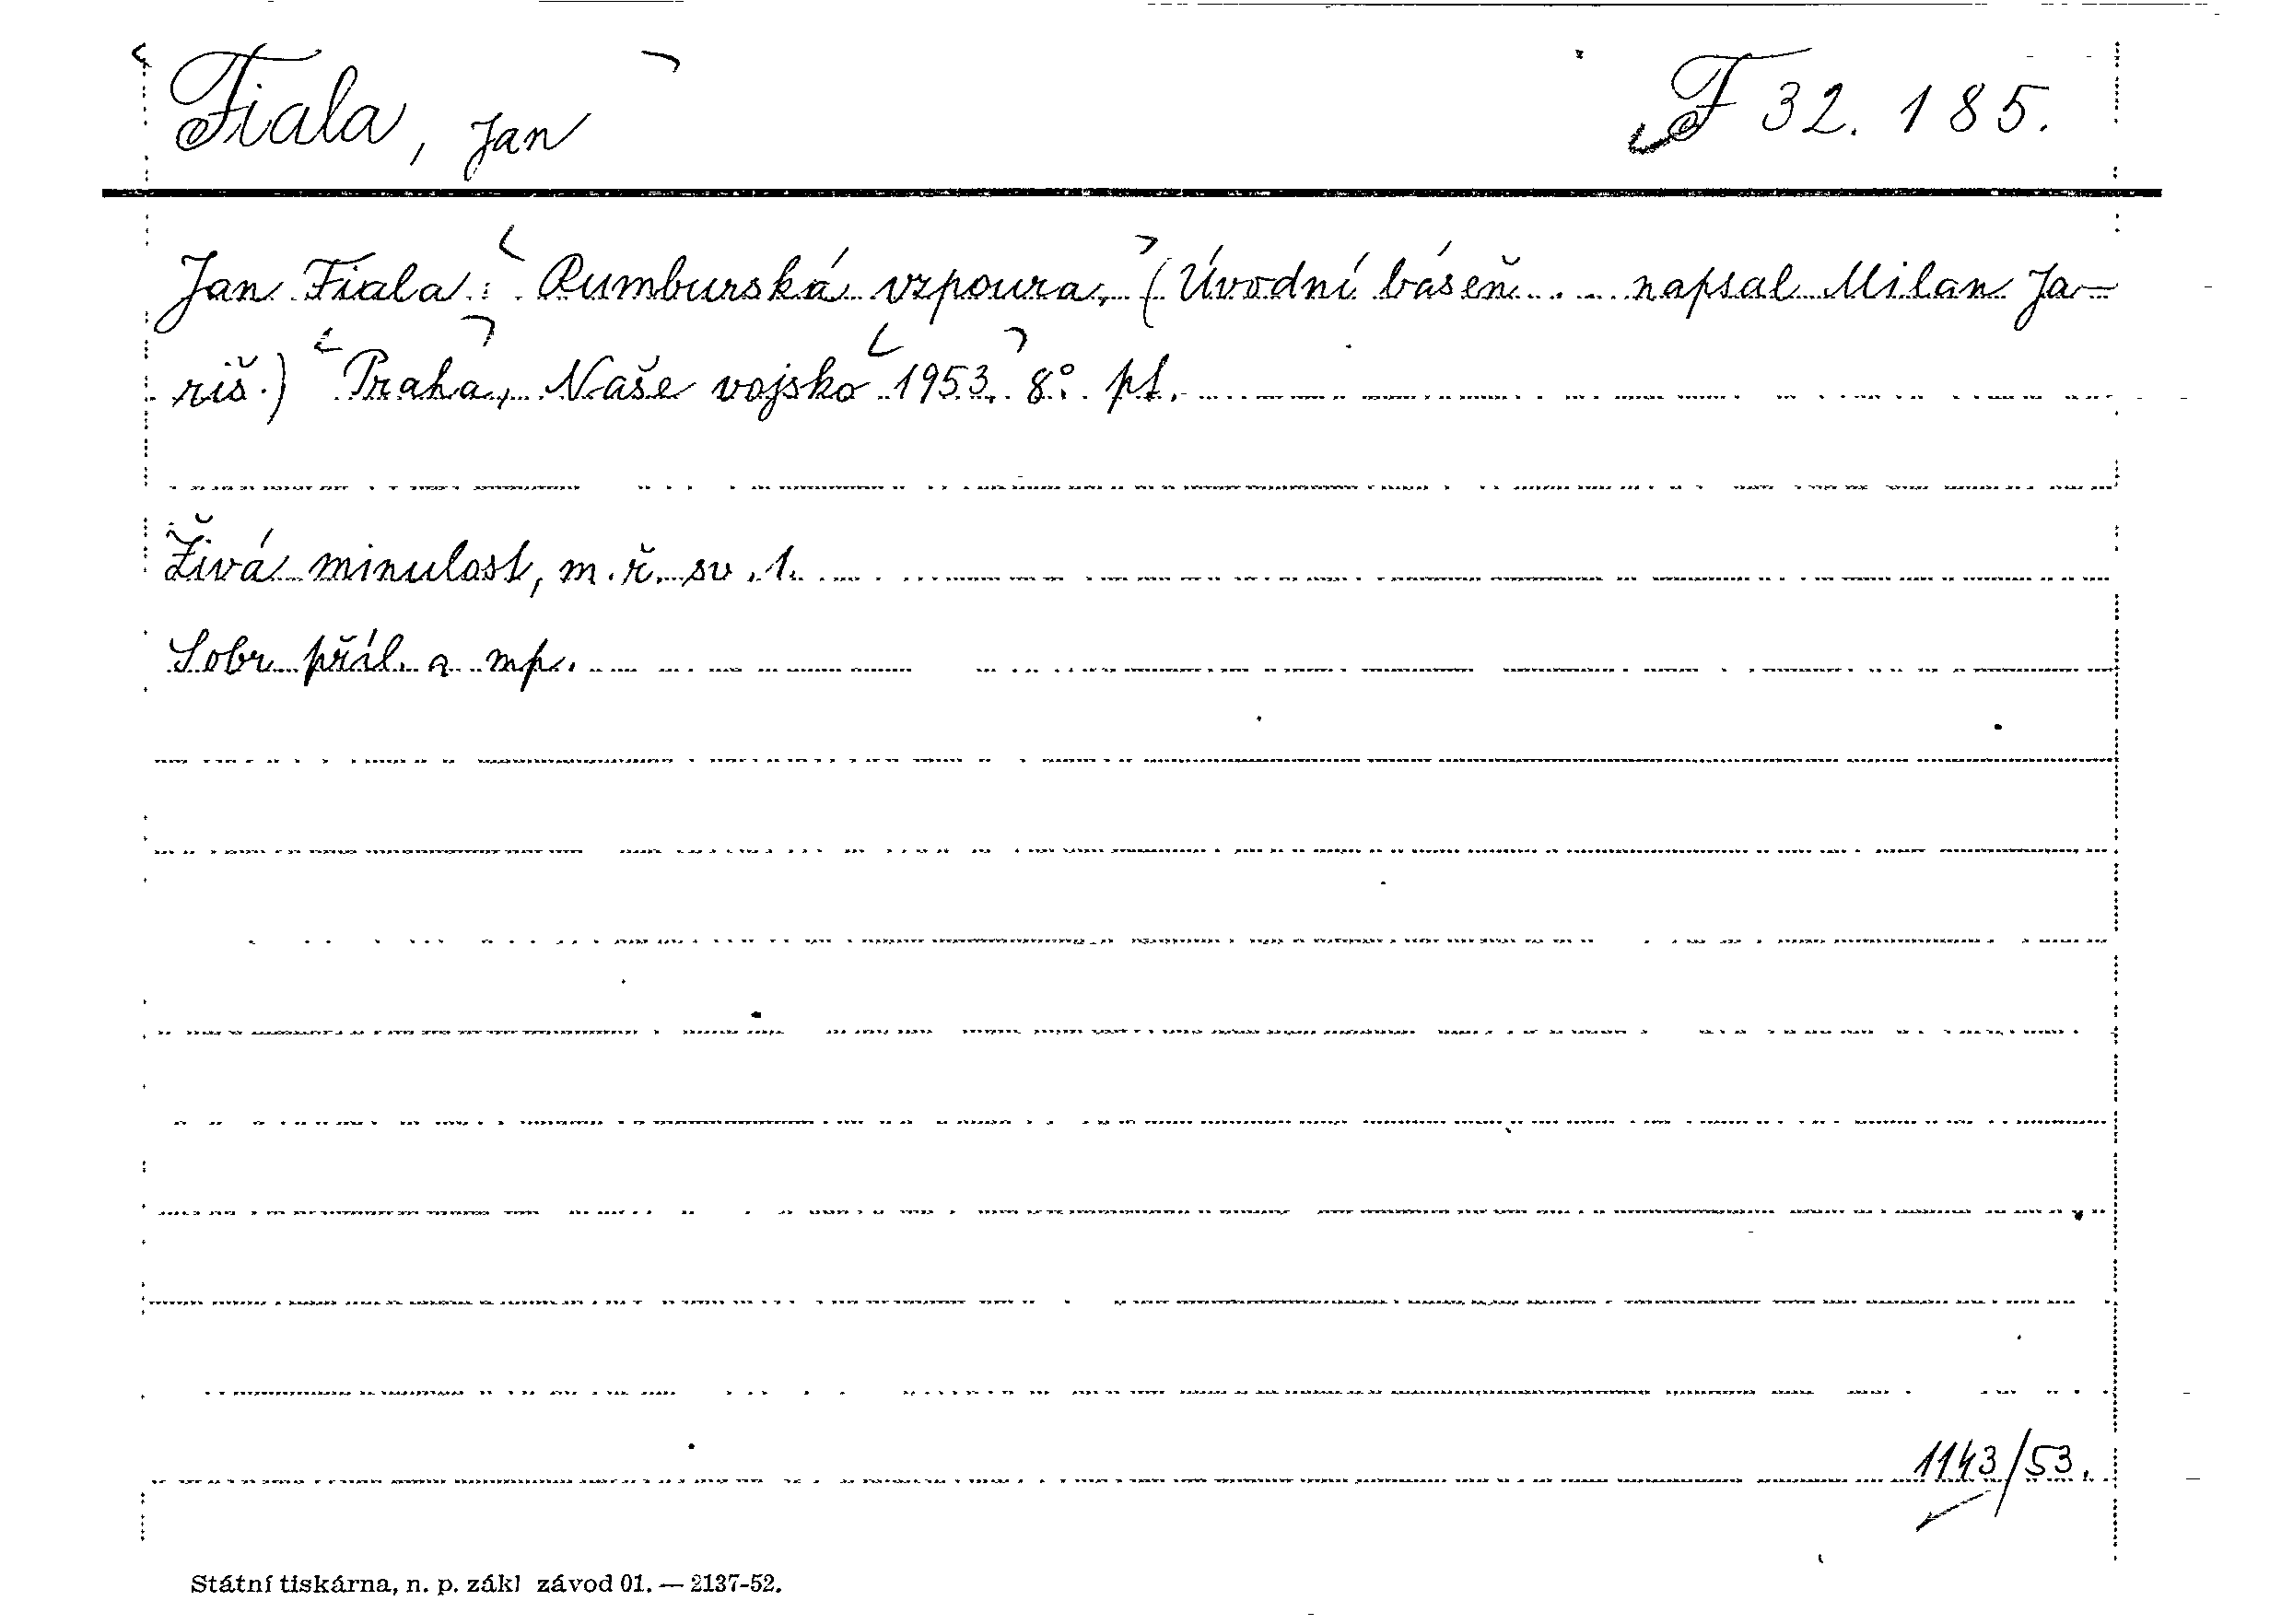 Fiala, Jan
F 32.185.
Jan Fiala: Rumburská vzpoura. (Úvodní báseň ... napsal Milan Ja-
riš.) Praha, Naše vojsko 1953. 8°. pt.
Živá minulost, m. ř. sv. 1.
S obr. příl. a mp.
1143/53.
Státní tiskárna, n. p. zákl závod 01. — 2137-52.